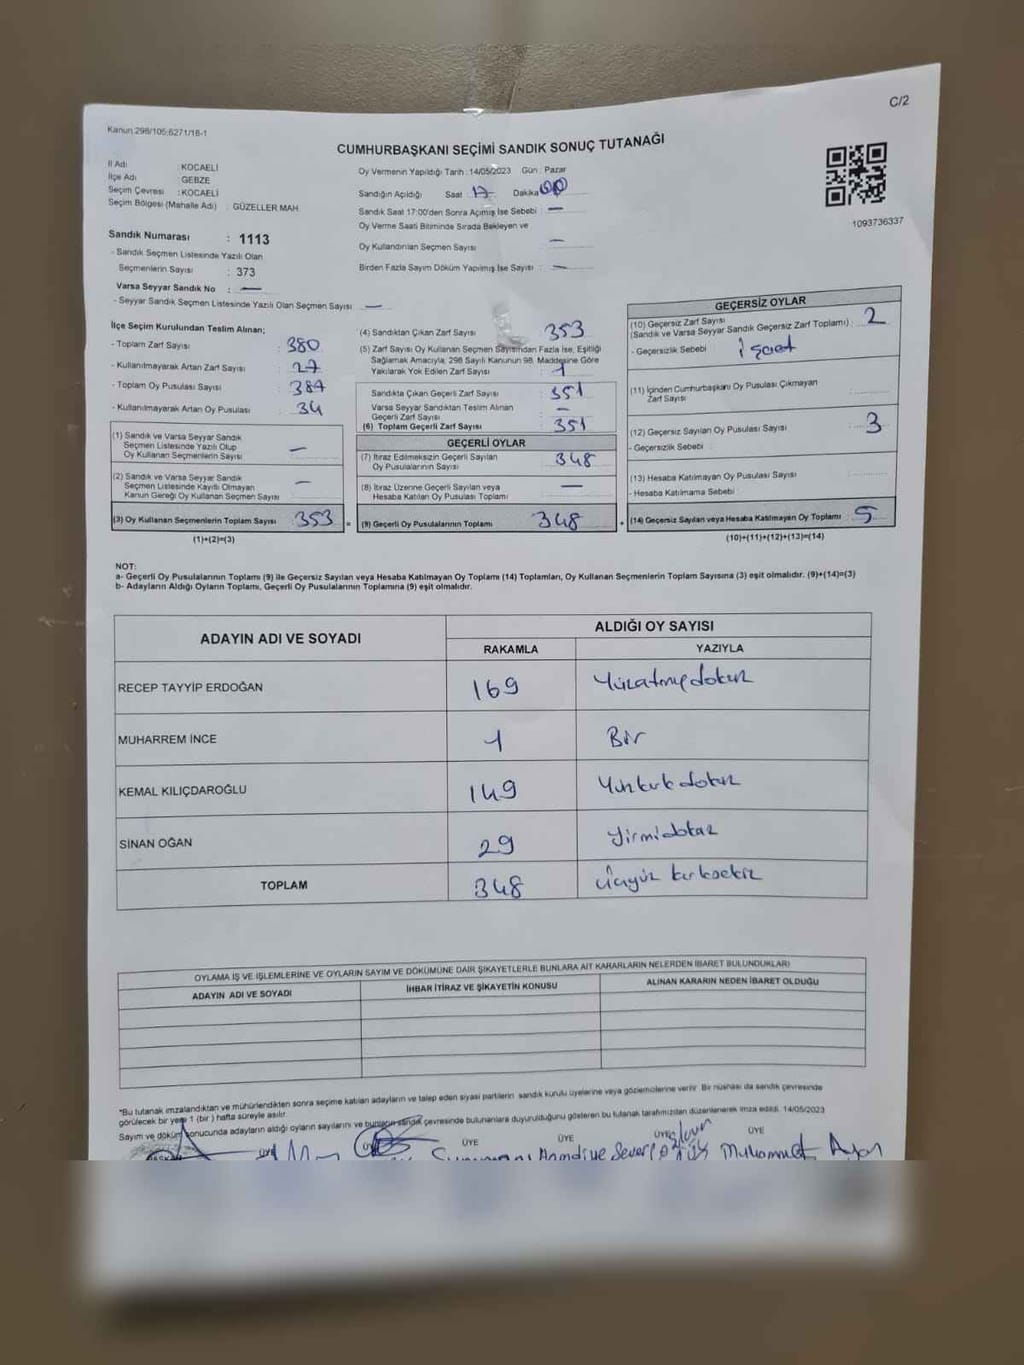 C/2
Kanun:298/105;6271/18-1
CUMHURBAŞKANI SEÇİMİ SANDIK SONUÇ TUTANAĞI
İl Adı : KOCAELİ
İlçe Adı : GEBZE
Seçim Çevresi : KOCAELİ
Seçim Bölgesi (Mahalle Adı) : GÜZELLER MAH.
Oy Vermenin Yapıldığı Tarih : 14/05/2023 Gün : Pazar
Sandığın Açıldığı Saat 17 Dakika 00
Sandık Saat 17:00'den Sonra Açılmış İse Sebebi : —
Oy Verme Saati Bitiminde Sırada Bekleyen ve
Oy Kullandırılan Seçmen Sayısı —
Birden Fazla Sayım Döküm Yapılmış İse Sayısı : —
1093736337
Sandık Numarası : 1113
- Sandık Seçmen Listesinde Yazılı Olan
Seçmenlerin Sayısı : 373
Varsa Seyyar Sandık No : —
- Seyyar Sandık Seçmen Listesinde Yazılı Olan Seçmen Sayısı —
İlçe Seçim Kurulundan Teslim Alınan;
- Toplam Zarf Sayısı : 380
- Kullanılmayarak Artan Zarf Sayısı : 27
- Toplam Oy Pusulası Sayısı : 387
- Kullanılmayarak Artan Oy Pusulası : 34
(1) Sandık ve Varsa Seyyar Sandık
Seçmen Listesinde Yazılı Olup
Oy Kullanan Seçmenlerin Sayısı —
(2) Sandık ve Varsa Seyyar Sandık
Seçmen Listesinde Kayıtlı Olmayan
Kanun Gereği Oy Kullanan Seçmen Sayısı —
(3) Oy Kullanan Seçmenlerin Toplam Sayısı 353
(1)+(2)=(3)
(4) Sandıktan Çıkan Zarf Sayısı 353
(5) Zarf Sayısı Oy Kullanan Seçmen Sayısından Fazla İse, Eşitliği
Sağlamak Amacıyla, 298 Sayılı Kanunun 98. Maddesine Göre
Yakılarak Yok Edilen Zarf Sayısı : 1
Sandıkta Çıkan Geçerli Zarf Sayısı 351
Varsa Seyyar Sandıktan Teslim Alınan
Geçerli Zarf Sayısı —
(6) Toplam Geçerli Zarf Sayısı 351
GEÇERLİ OYLAR
(7) İtiraz Edilmeksizin Geçerli Sayılan
Oy Pusulalarının Sayısı 348
(8) İtiraz Üzerine Geçerli Sayılan veya
Hesaba Katılan Oy Pusulası Toplamı —
= (9) Geçerli Oy Pusulalarının Toplamı 348
GEÇERSİZ OYLAR
(10) Geçersiz Zarf Sayısı
(Sandık ve Varsa Seyyar Sandık Geçersiz Zarf Toplamı) : 2
- Geçersizlik Sebebi : işaret
(11) İçinden Cumhurbaşkanı Oy Pusulası Çıkmayan
Zarf Sayısı
(12) Geçersiz Sayılan Oy Pusulası Sayısı : 3
- Geçersizlik Sebebi :
(13) Hesaba Katılmayan Oy Pusulası Sayısı
- Hesaba Katılmama Sebebi :
+ (14) Geçersiz Sayılan veya Hesaba Katılmayan Oy Toplamı 5
(10)+(11)+(12)+(13)=(14)
NOT:
a- Geçerli Oy Pusulalarının Toplamı (9) ile Geçersiz Sayılan veya Hesaba Katılmayan Oy Toplamı (14) Toplamları, Oy Kullanan Seçmenlerin Toplam Sayısına (3) eşit olmalıdır. (9)+(14)=(3)
b- Adayların Aldığı Oyların Toplamı, Geçerli Oy Pusulalarının Toplamına (9) eşit olmalıdır.
ADAYIN ADI VE SOYADI ALDIĞI OY SAYISI
RAKAMLA YAZIYLA
RECEP TAYYİP ERDOĞAN 169 Yüzatmışdokuz
MUHARREM İNCE 1 Bir
KEMAL KILIÇDAROĞLU 149 Yüzkırkdokuz
SİNAN OĞAN 29 Yirmidokuz
TOPLAM 348 üçyüz kırksekiz
OYLAMA İŞ VE İŞLEMLERİNE VE OYLARIN SAYIM VE DÖKÜMÜNE DAİR ŞİKAYETLERLE BUNLARA AİT KARARLARIN NELERDEN İBARET BULUNDUKLARI
ADAYIN ADI VE SOYADI İHBAR İTİRAZ VE ŞİKAYETİN KONUSU ALINAN KARARIN NEDEN İBARET OLDUĞU
*Bu tutanak imzalandıktan ve mühürlendikten sonra seçime katılan adayların ve talep eden siyasi partilerin sandık kurulu üyelerine veya gözlemcilerine verilir. Bir nüshası da sandık çevresinde
görülecek bir yere 1 (bir) hafta süreyle asılır.
Sayım ve döküm sonucunda adayların aldığı oyların sayılarını ve bunların sandık çevresinde bulunanlara duyurulduğunu gösteren bu tutanak tarafımızdan düzenlenerek imza edildi. 14/05/2023
BAŞKAN ÜYE ÜYE ÜYE ÜYE ÜYE
Hamdiye Sever Muhammet